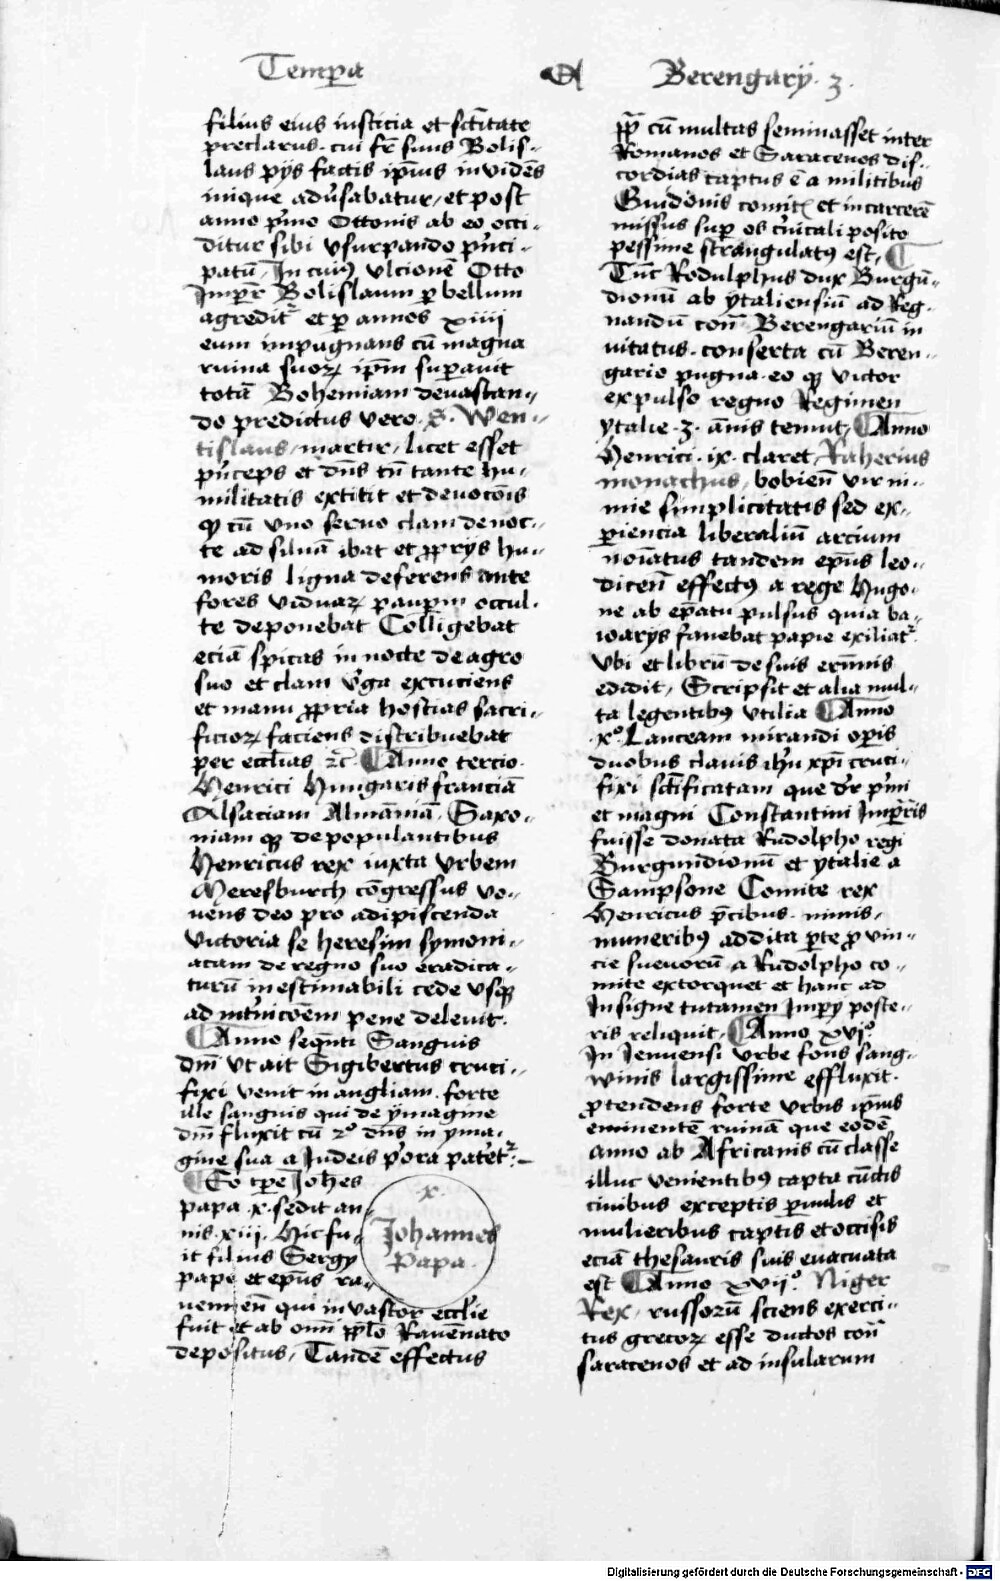 Temp̄a
Berengarÿ · 3 ·
filius eius iusticia et sc̄titate
preclarus · cui fr̄ suus Bolis-
laus pÿs factis ip̄ius invidēs
inique adūsabatur, et post
anno p̄mo Ottonis ab eo occi-
ditur sibi vsurpando p̄nci-
patū, In cuiꝰ vlcionē Otto
Imper̄ Bolislaum p bellum
agredit᷑ et p annos xiiij
eum impugnans cū magna
ruina suoꝝ ip̄m sup̄auit
totā Bohemiam deuastan-
do predictus vero · S · Wen-
tislaus, martir, licet esset
p̄nceps et dn̄s tn̄ tante hu-
militatis extitit et deuocōis
ꝙ cū vno seruo clam de noc-
te ad siluā ibat et ꝓprÿs hu-
moris ligna deferens ante
fores viduaꝝ paup̄m occul-
te deponebat Colligebat
eciā spicas in nocte de agro
suo et clam v̄ga excuciens
et manu ꝓpria hostias sacri-
ficioꝝ faciens distribuebat
per eccl̄ias ⁊c̄ · Anno tercio
Henrici Hungaris franciā
Alsaciam Almāniā, Saxo-
niam qꝫ depopulantibus
Henricus rex iuxta vrbem
Meresburch cōgressus vo-
uens deo pro adipiscenda
victoria se heresim symoni-
acam de regno suo eradica-
turū inestimabili cede vsqꝫ
ad int̄nicōem pene deleuit ·
Anno seqn̄ti Sanguis
dn̄i vt ait Sigibertus cruci-
fixi venit in angliam · forte
ille sanguis qui de ÿmagine
dn̄i fluxit cū dn̄s in yma-
gine sua a Judeis
Eo tp̄re Joh̄es
papa · x · sedit an-
nis · xiii · Hic fu-
it filius Sergÿ
pape et ep̄us ra-
uenneñ qui invasor eccl̄ie
fuit et ab om̄i pp̄lo Rauēnato
depositus, Tandē effectus
x ·
Johannes
Papa ·
pp̄ cū multas seminasset inter
Romanos et Saracenos dis-
cordias captus ē a militibus
Guidonis comit̄ et in carcerē
missus sup̄ os c̄uicali posito
pessime strangulatꝰ est,
Tūc Rodulphus dux Burgū-
dionū ab ÿtaliensiū ad Reg-
nandū con̄ Berengariū in
uitatus · conserta cū Beren-
gario pugna · eo qꝫ victor
expulso regno Regimen
ÿtalie · 3 · ānis tenuit, Anno
Henrici · ix · claret, Raherius
monachus, bobien̄ vir ni-
mie simplicitatis sed ex-
piencia liberaliū arcium
noīatus tandem ep̄us leo-
dicen̄ effectꝰ a rege Hugo-
ne ab ep̄atu pulsus quia ba-
ioarÿs fauebat papie exiliat᷑
vbi et librū de suis erūnis
edidit, Scripsit et alia mul-
ta legentibꝰ vtilia Anno
· xº · Lanceam mirandi op̄is
duobus clauis ih̄u xp̄i cruci-
fixi sc̄tificatam que d᷑r p̄mi
et magni Constantini Imp̄r̄is
fuisse donata Rudolpho regi
Burgundionū et ÿtalie a
Sampsone Comite rex
Henricus p̄cibus · minis,
muneribꝰ addita p̄te ꝓvin-
cie sueuorū a Rudolpho co-
mite extorquet et hanc ad
Insigne tutamen Impÿ poste-
ris reliquit, Anno xviº
In Jenuensi vrbe fons sang-
winis largissime effluxit ·
ꝓtendens forte vrbis ip̄ius
eminentē ruinā que eodē
anno ab Africanis cū classe
illuc venientibꝰ capta cūctis
ciuibus exceptis p̄uulis et
mulieribus captis et occisis
eciā thesauris suis euacuata
est Anno xvijº Niger
Rex, russorū sciens exerci-
tus grecoꝝ esse ductos con̄
saracenos et ad insularum
Digitalisierung gefördert durch die Deutsche Forschungsgemeinschaft - DFG